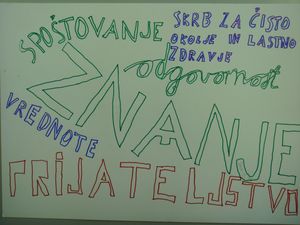 SPOŠTOVANJE
SKRB ZA ČISTO
OKOLJE IN LASTNO
ZDRAVJE
odgovornost
ZNANJE
VREDNOTE
PRIJATELJSTVO